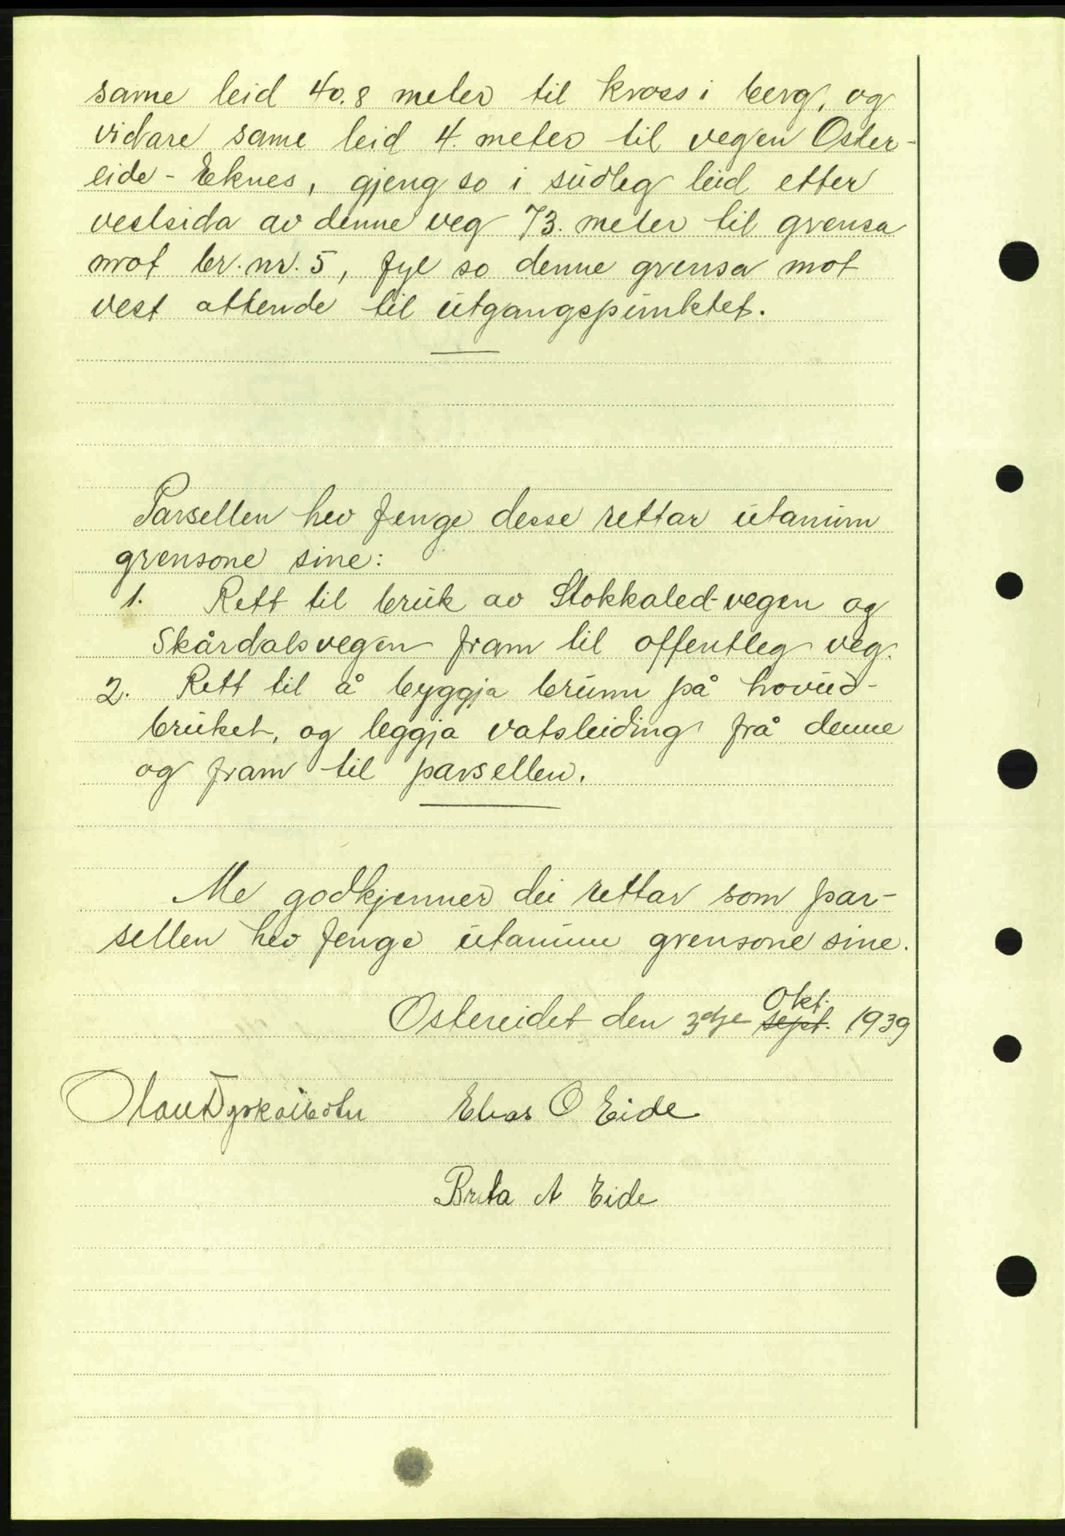 same leid 40.8 meter til kross i berg, og
vidare same leid 4. meter til vegen Oster-
eide - Eknes, gjeng so i sudleg leid etter
vestsida av denne veg 73. meter til grensa
mot br. nr. 5, fyl so denne grensa mot
vest attende til utgangspunktet.
Parsellen hev fenge desse rettar utanum
grensone sine:
1. Rett til bruk av Stokkaled-vegen og
Skårdalsvegen fram til offentleg veg.
2. Rett til å byggja brunn på hovud-
bruket, og leggja vatsleiding frå denne
og fram til parsellen.
Me godkjenner dei rettar som par-
sellen hev fenge utanum grensone sine.
Ostereidet den 3dje sept. Okt. 1939
Elias O Eide
Brita A Eide